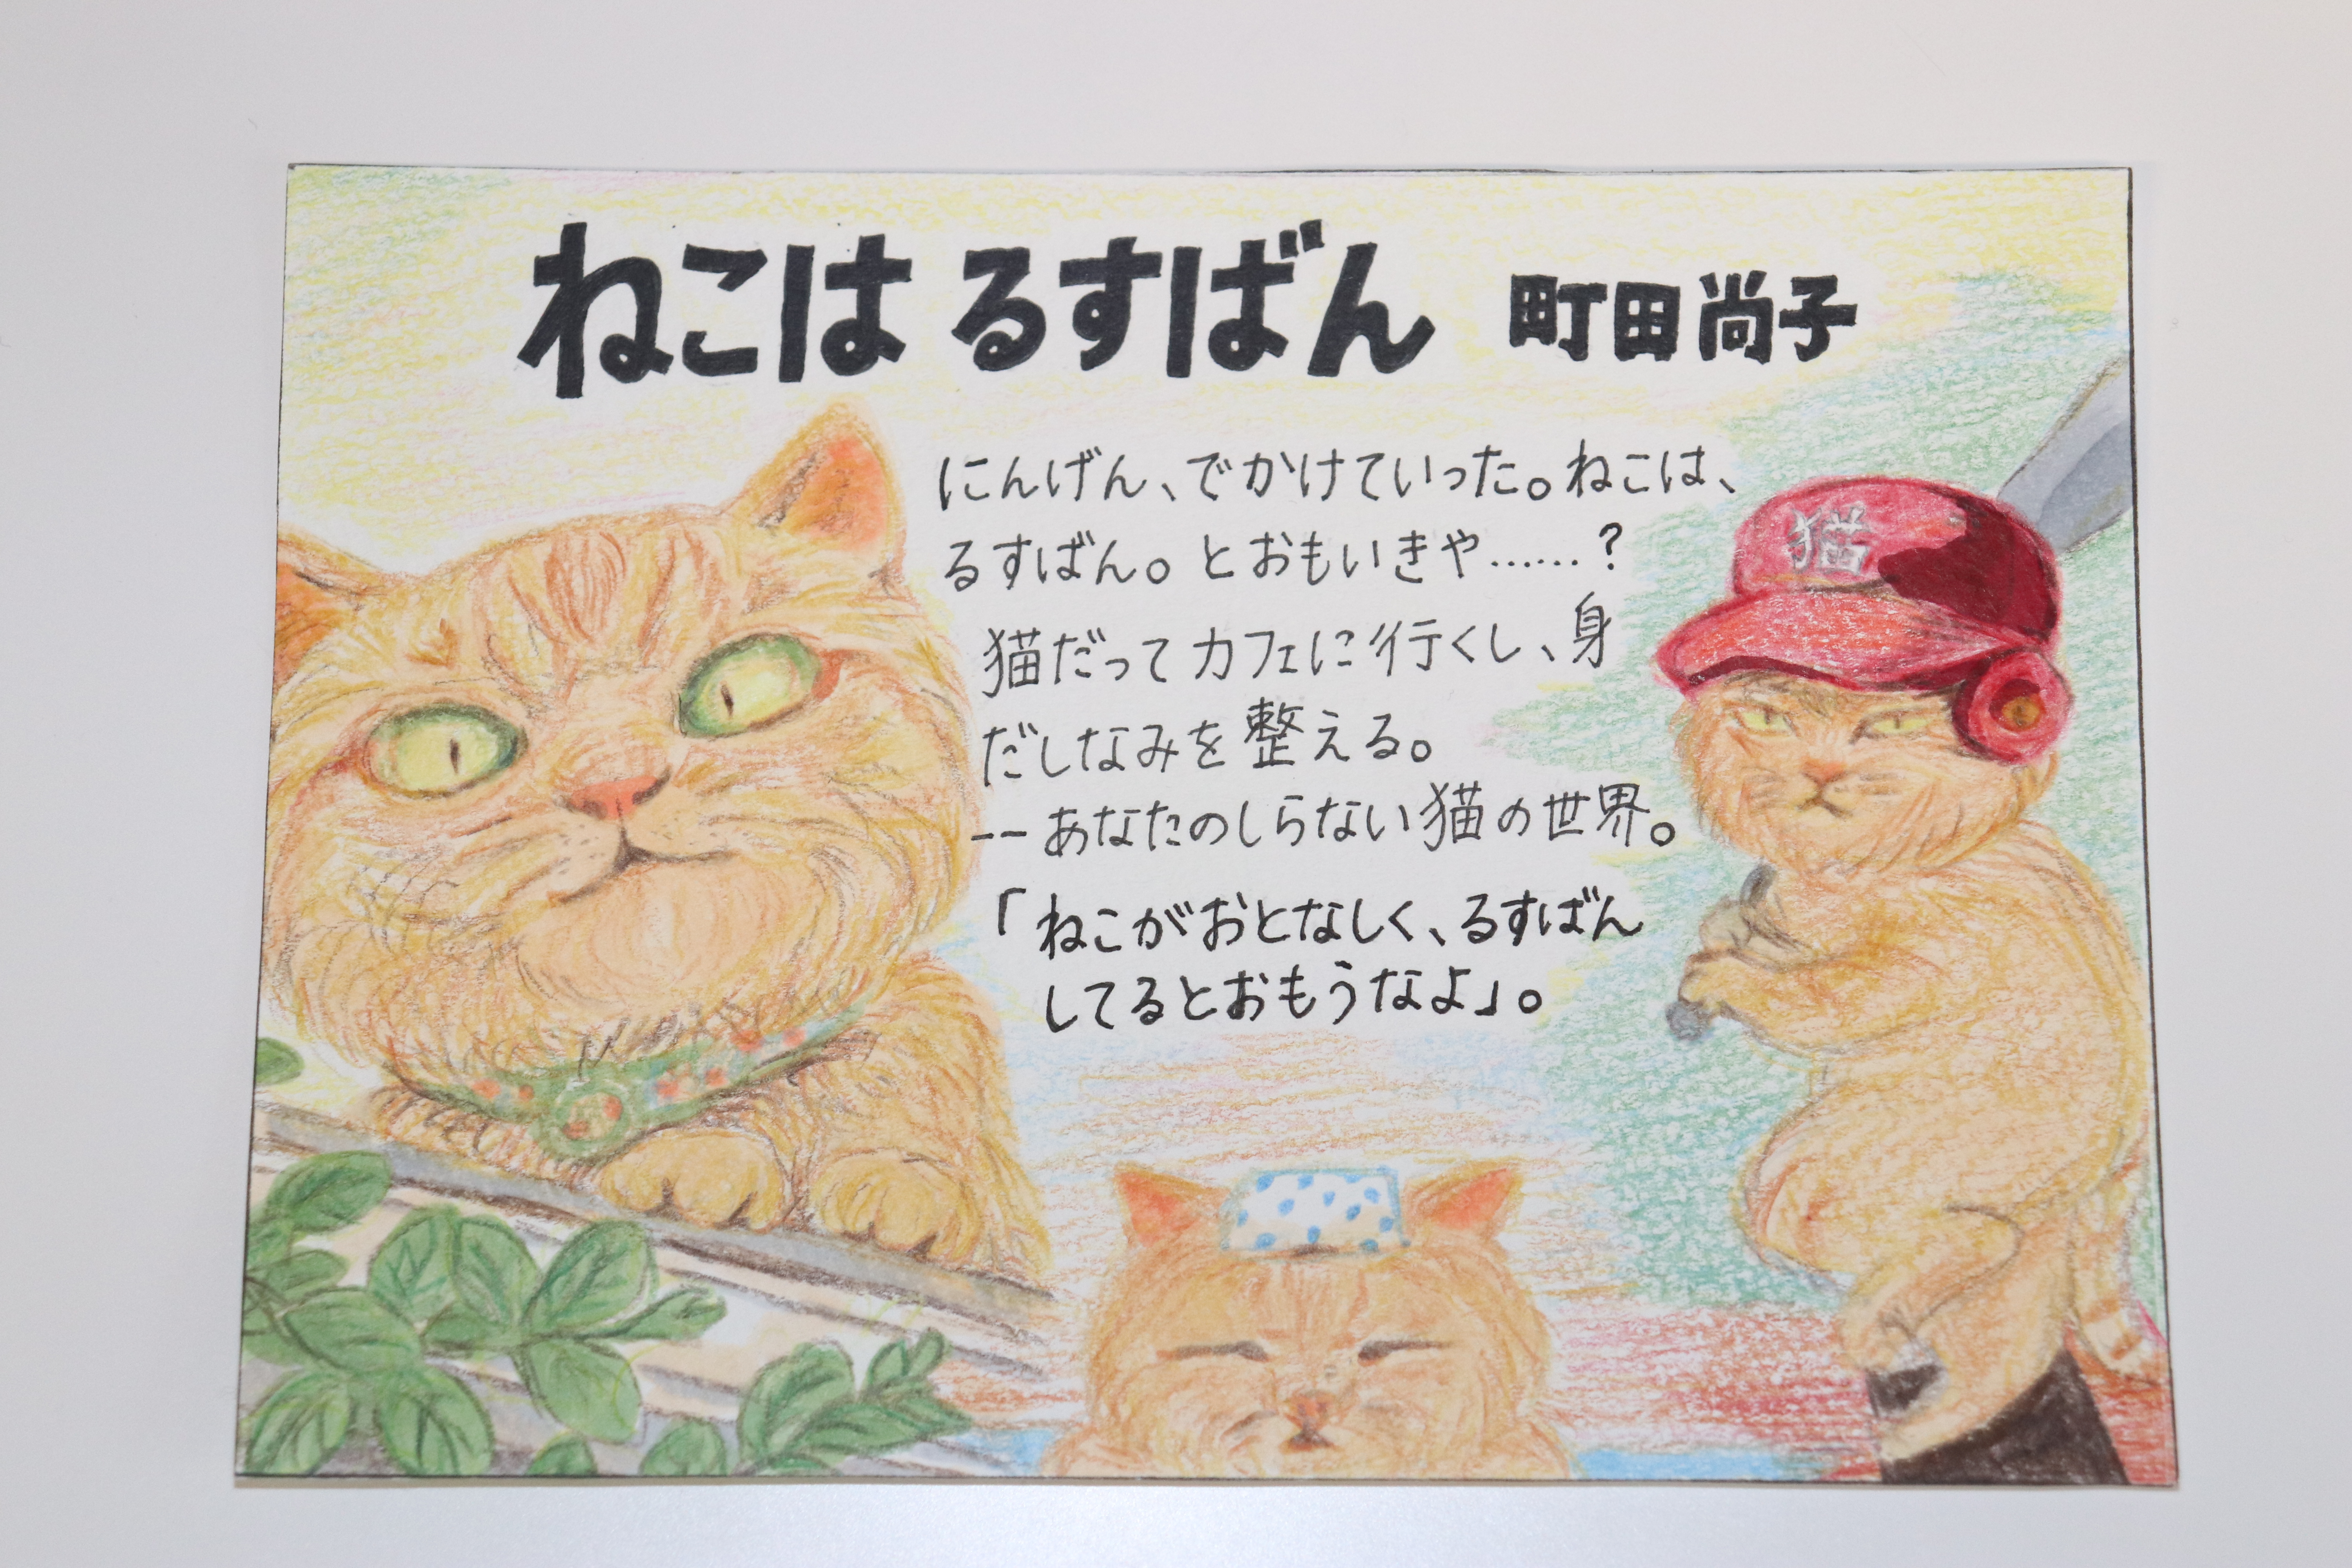 ねこは るすばん 町田尚子
にんげん、でかけていった。ねこは、
るすばん。とおもいきや……?
猫だってカフェに行くし、身
だしなみを整える。
--あなたのしらない猫の世界。
「ねこがおとなしく、るすばん
してるとおもうなよ」。
猫